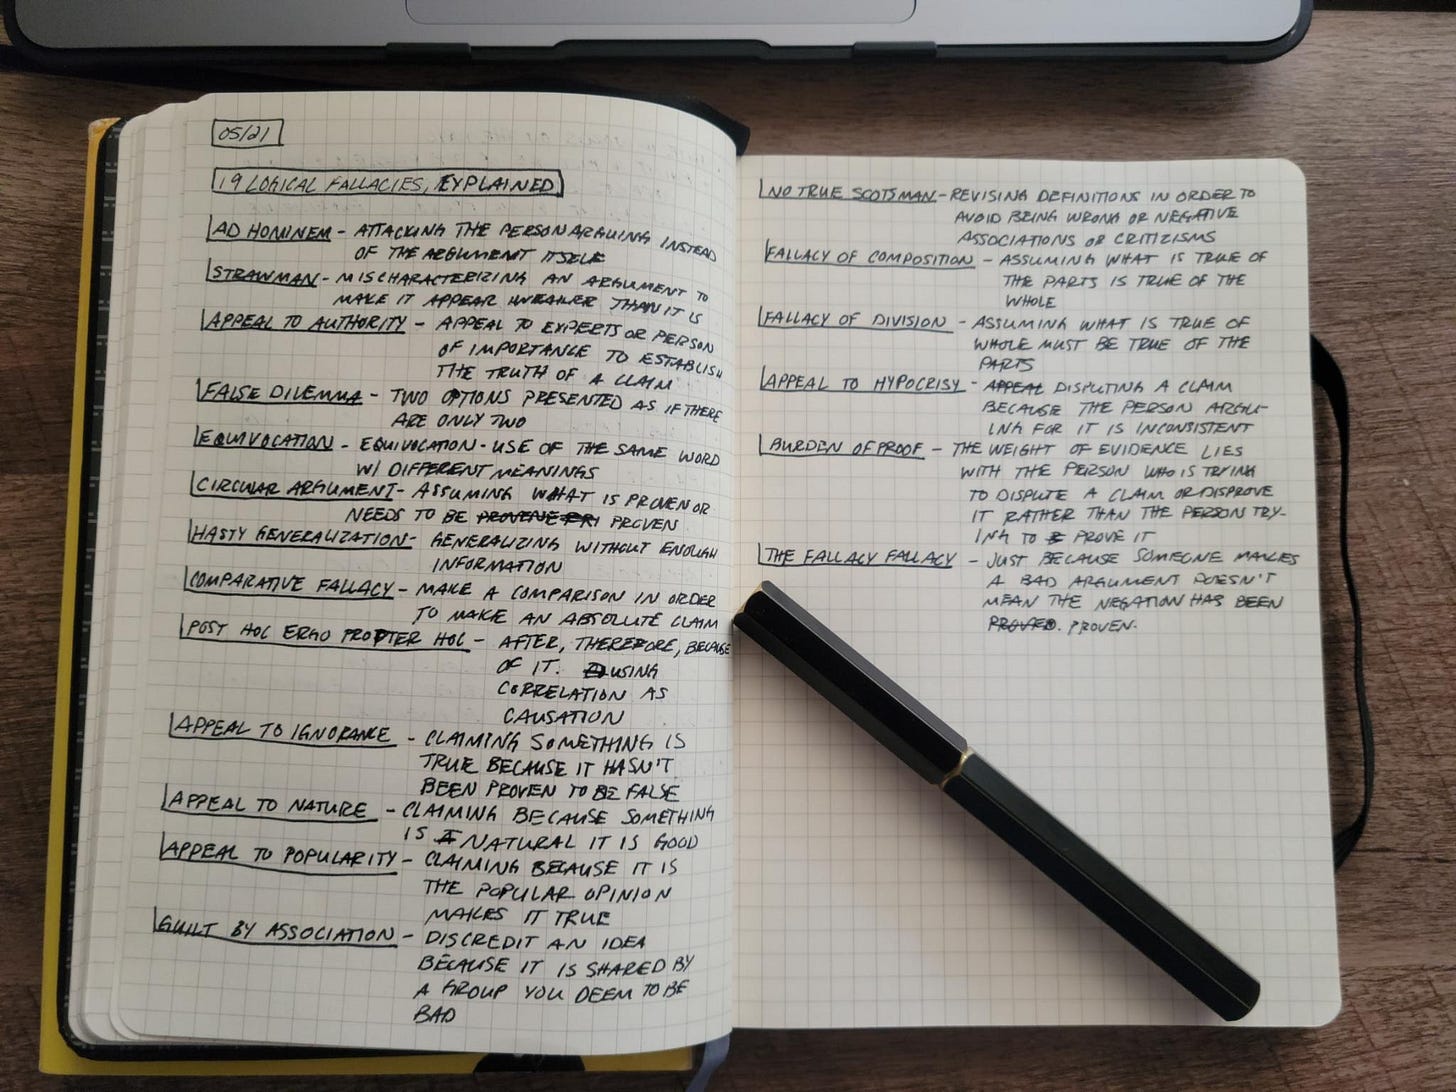 05/21
19 LOGICAL FALLACIES, EXPLAINED
AD HOMINEM - ATTACKING THE PERSON ARGUING INSTEAD
OF THE ARGUMENT ITSELF
STRAWMAN - MISCHARACTERIZING AN ARGUMENT TO
MAKE IT APPEAR WEAKER THAN IT IS
APPEAL TO AUTHORITY - APPEAL TO EXPERTS OR PERSON
OF IMPORTANCE TO ESTABLISH
THE TRUTH OF A CLAIM
FALSE DILEMMA - TWO OPTIONS PRESENTED AS IF THERE
ARE ONLY TWO
EQUIVOCATION - EQUIVOCATION - USE OF THE SAME WORD
W/ DIFFERENT MEANINGS
CIRCULAR ARGUMENT - ASSUMING WHAT IS PROVEN OR
NEEDS TO BE PROVEN
HASTY GENERALIZATION - GENERALIZING WITHOUT ENOUGH
INFORMATION
COMPARATIVE FALLACY - MAKE A COMPARISON IN ORDER
TO MAKE AN ABSOLUTE CLAIM
POST HOC ERGO PROPTER HOC - AFTER, THEREFORE, BECAUSE
OF IT. USING
CORRELATION AS
CAUSATION
APPEAL TO IGNORANCE - CLAIMING SOMETHING IS
TRUE BECAUSE IT HASN'T
BEEN PROVEN TO BE FALSE
APPEAL TO NATURE - CLAIMING BECAUSE SOMETHING
IS NATURAL IT IS GOOD
APPEAL TO POPULARITY - CLAIMING BECAUSE IT IS
THE POPULAR OPINION
MAKES IT TRUE
GUILT BY ASSOCIATION - DISCREDIT AN IDEA
BECAUSE IT IS SHARED BY
A GROUP YOU DEEM TO BE
BAD
NO TRUE SCOTSMAN - REVISING DEFINITIONS IN ORDER TO
AVOID BEING WRONG OR NEGATIVE
ASSOCIATIONS OR CRITIZISMS
FALLACY OF COMPOSITION - ASSUMING WHAT IS TRUE OF
THE PARTS IS TRUE OF THE
WHOLE
FALLACY OF DIVISION - ASSUMING WHAT IS TRUE OF
WHOLE MUST BE TRUE OF THE
PARTS
APPEAL TO HYPOCRISY - APPEAL DISPUTING A CLAIM
BECAUSE THE PERSON ARGU-
ING FOR IT IS INCONSISTENT
BURDEN OF PROOF - THE WEIGHT OF EVIDENCE LIES
WITH THE PERSON WHO IS TRYING
TO DISPUTE A CLAIM OR DISPROVE
IT RATHER THAN THE PERSON TRY-
ING TO PROVE IT
THE FALLACY FALLACY - JUST BECAUSE SOMEONE MAKES
A BAD ARGUMENT DOESN'T
MEAN THE NEGATION HAS BEEN
PROVED. PROVEN.